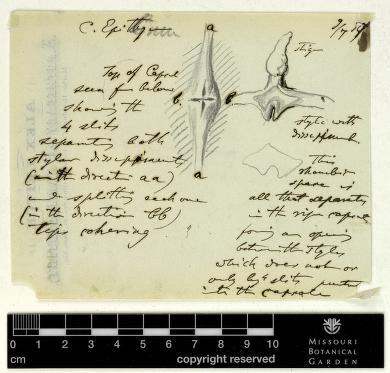 C. Epithy
a
2/7 57
Top of Capsule
seen from below
showing the
4 slits
separating both
styles
(in the direction aa)
and splitting each one
(in the direction bb)
tips cohering
b
b
a
style with
This
rhomboid
space is
all that separates
in the ripe capsule
an opening
between the styles
which does not or
only by slits
into the capsule
0 1 2 3 4 5 6 7 8 9 10
cm
copyright reserved
MISSOURI
BOTANICAL
GARDEN